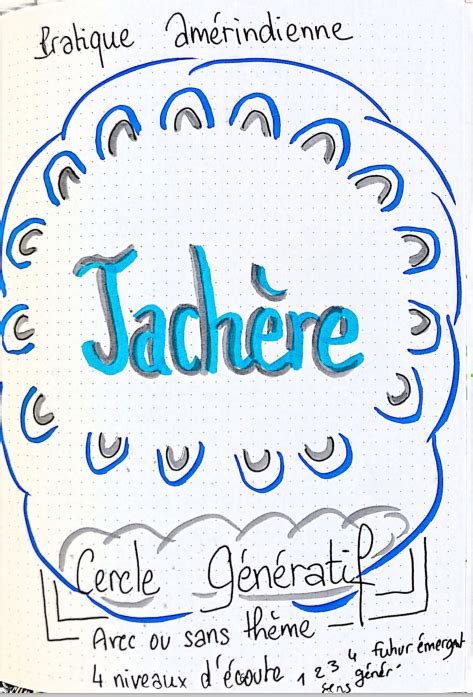 Pratique Amérindienne
Jachère
Cercle Génératif
Avec ou sans thème
4 niveaux d'écoute 1 2 3 4 futur émergent
sens génér